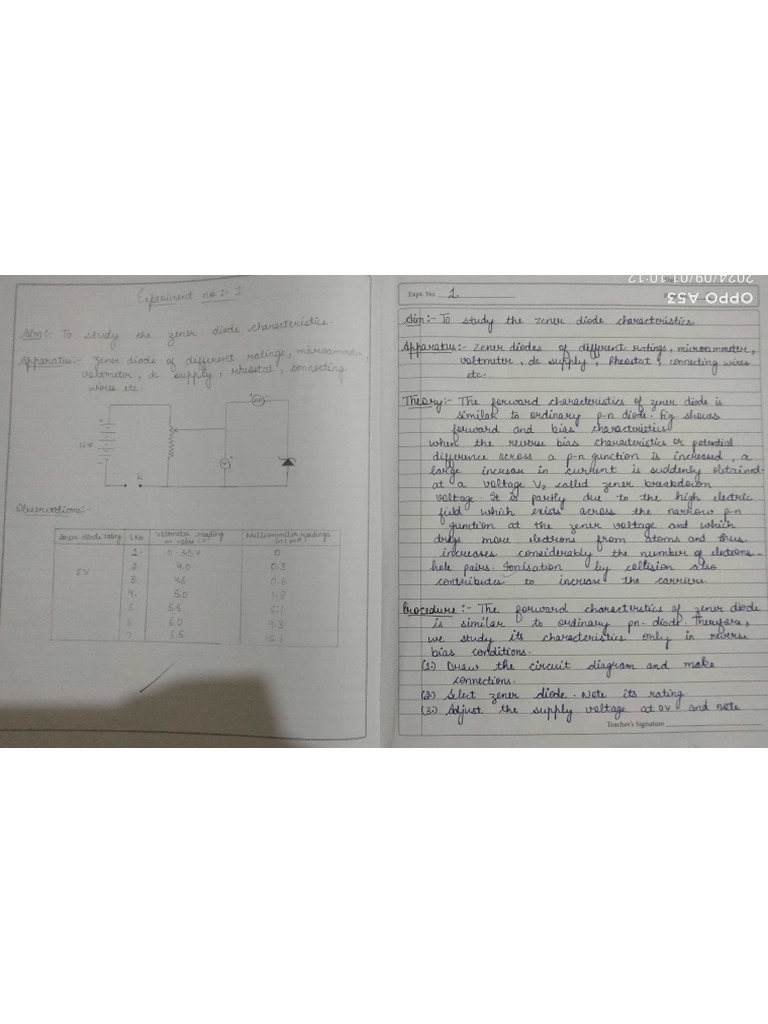 Experiment no :- 1
Aim:- To study the zener diode characteristics.
Apparatus:- Zener diode of different ratings, microammeter,
voltmeter, dc supply, rheostat, connecting
wires etc.
12V
K
V
+
Observations:-
Zener diode rating S.No. Voltmeter reading Milliammeter readings
in volts (V) (in mA)
1. 0-3.5 V 0
2. 4.0 0.3
5V 3. 4.5 0.6
4. 5.0 1.8
5. 5.5 5.1
6. 6.0 9.3
7. 6.5 15.1
2024/09/01 10:12
OPPO A53
Expt. No. 1
Aim:- To study the zener diode characteristics
Apparatus:- Zener diodes of different ratings, microammeter,
voltmeter, dc supply, Rheostat, connecting wires
etc.
Theory:- The forward characteristics of zener diode is
similar to ordinary p-n diode. Fig shows
forward and bias characteristics
when the reverse bias characteristics or potential
difference across a p-n junction is increased, a
large increase in current is suddenly obtained
at a voltage Vz called zener breakdown
voltage. It is partly due to the high electric
field which exists across the narrow p-n
junction at the zener voltage and which
drags more electrons from atoms and thus
increases considerably the number of electrons-
hole pairs. Ionisation by collision also
contributes to increase the carriers.
Procedure:- The forward characteristics of zener diode
is similar to ordinary pn-diode. Therefore,
we study its characteristics only in reverse
bias conditions.
(1) Draw the circuit diagram and make
connections.
(2) Select zener diode. Note its rating
(3) Adjust the supply voltage at 0V and note
Teacher's Signature